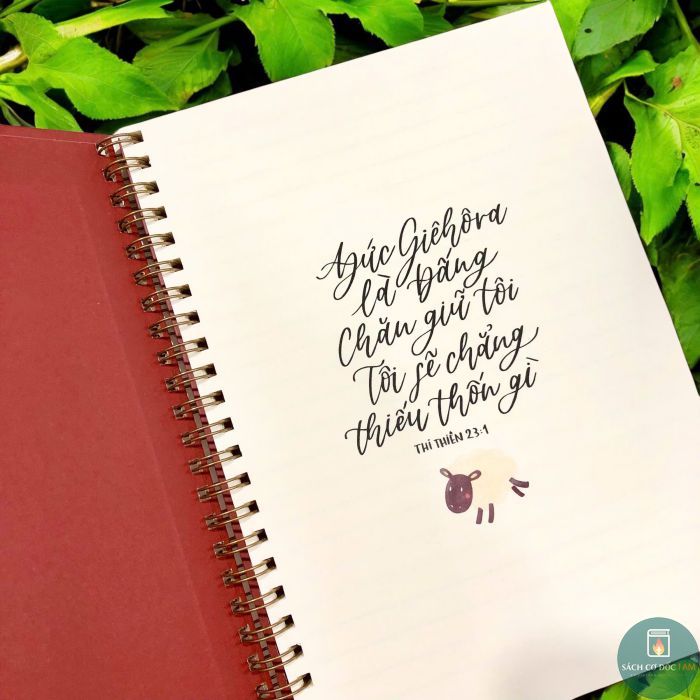 Đức Giêhôva
là Đấng
Chăn giữ tôi
Tôi sẽ chẳng
thiếu thốn gì
THI THIÊN 23:1
SÁCH CƠ ĐỐC 1 AM